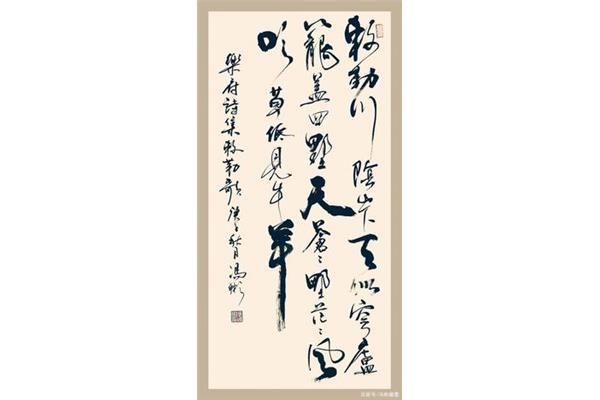 敕勒川陰山下天似穹廬
籠盖四野天蒼々野茫々風
吹草低見牛羊
樂府詩集敕勒歌庚子秋月馮彬